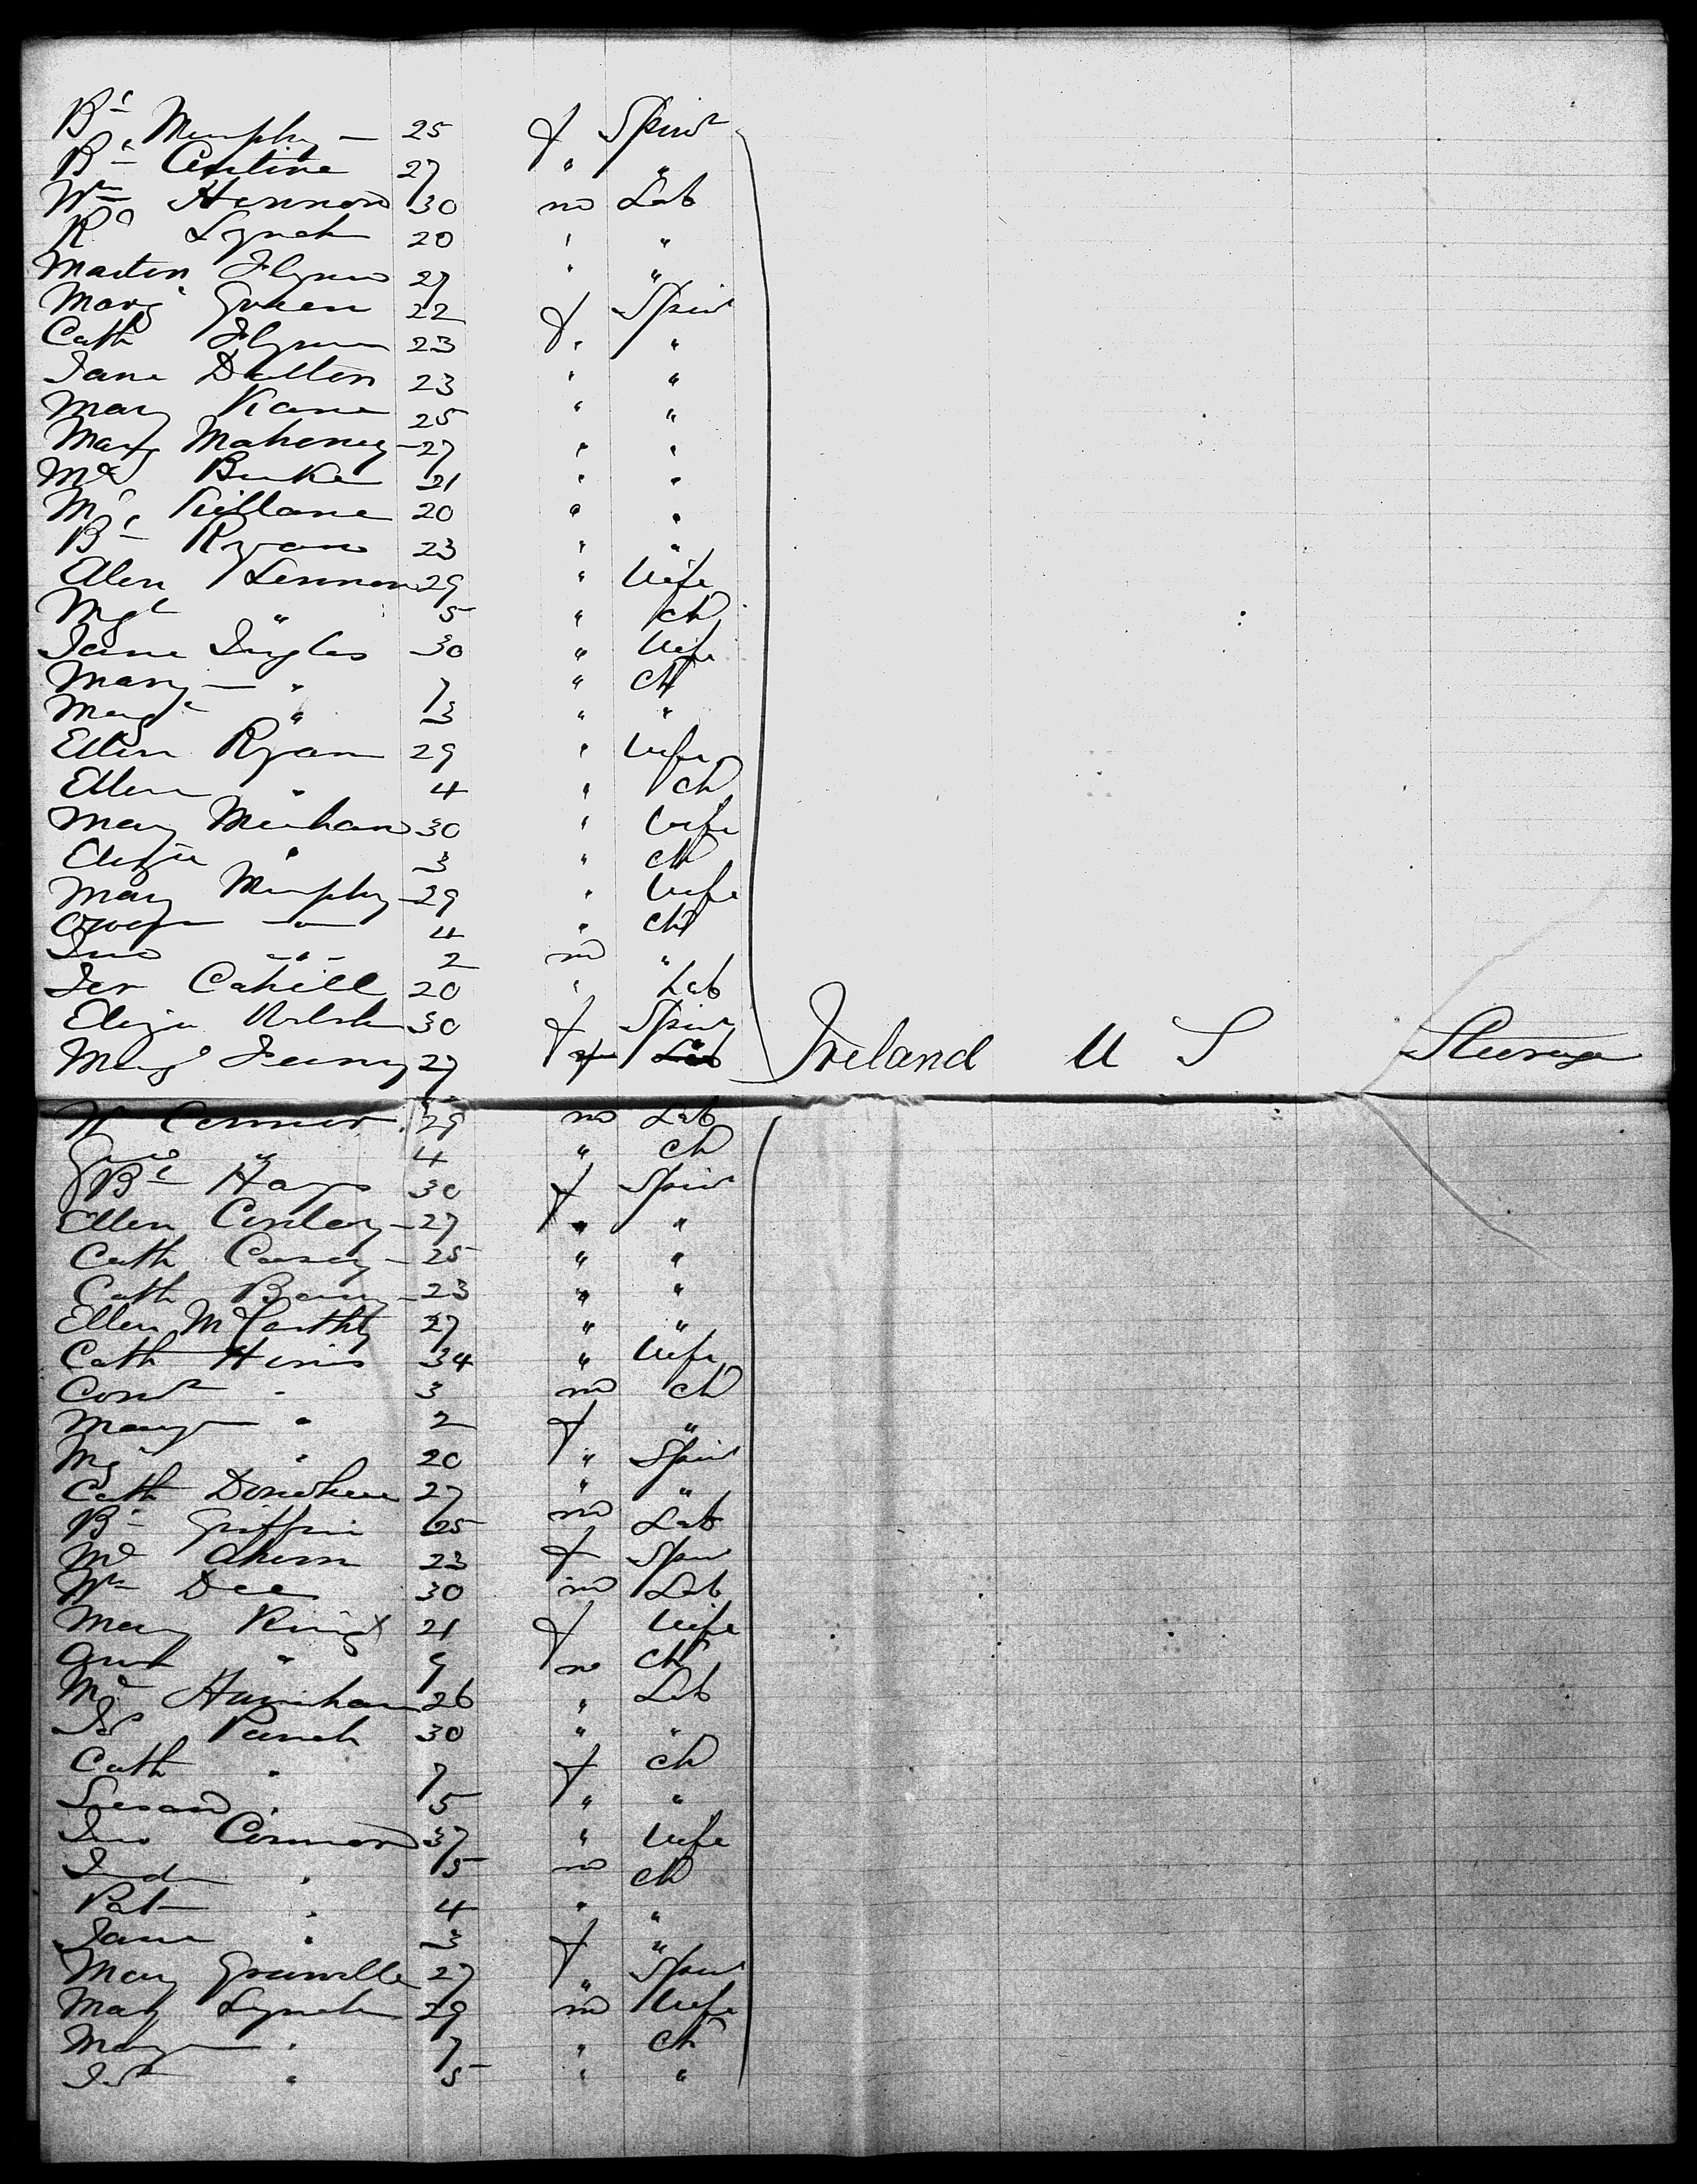 Bt Murphy — 25 f Spinr
Bt Cantine 27 " "
Wm Hennon 30 m Lab
Rd Lynch 20 " "
Martin Flynn 27 " "
Marg Green 22 f Spinr
Cath Flynn 23 " "
Jane Dalton 23 " "
Mary Kane 25 " "
Mary Mahoney — 27 " "
Md Burke 21 " "
Mt Killane 20 " "
Bt Ryan 23 " "
Ellen Lennon 29 " Wife
Mgt " 5 " Ch
Jane Ingles 30 " Wife
Mary — " 7 " Ch
Margt " 3 " "
Ellen Ryan 29 " Wife
Ellen " 4 " Ch
Mary Meehan 30 " Wife
Eliza " 3 " Ch
Mary Murphy — 29 " Wife
" 4 " Ch
Jno " 2 m "
Jer Cahill 20 " Lab
Eliza Welsh 30 f Spinr
Marg Feeny 27 f Lab Ireland U S Steerage
W Connor 29 m Lab
" 4 " Ch
Bt Hays 30 f Spinr
Ellen Conley — 27 " "
Cath Casey — 25 " "
Cath Barry — 23 " "
Ellen McCarthy 27 " "
Cath 34 " Wife
Cons " 3 m Ch
Mary — " 2 f "
Mg " 20 " Spinr
Cath Donohue 27 " "
Bt Griffin 25 m Lab
Md Ahern 23 f Spinr
Wm Dee 30 m Lab
Mary King x 21 f Wife
" 9 m Ch
Ml Hanihan 26 " Lab
Js Punch 30 " "
Cath " 7 f Ch
Susan " 5 " "
Jno Connor 37 " Wife
" 5 m Ch
Pat — " 4 " "
Jane " 3 f "
Mary Granville 27 " Spinr
Mary Lynch 29 m Wife
Mary — " 7 " Ch
" 5 " "